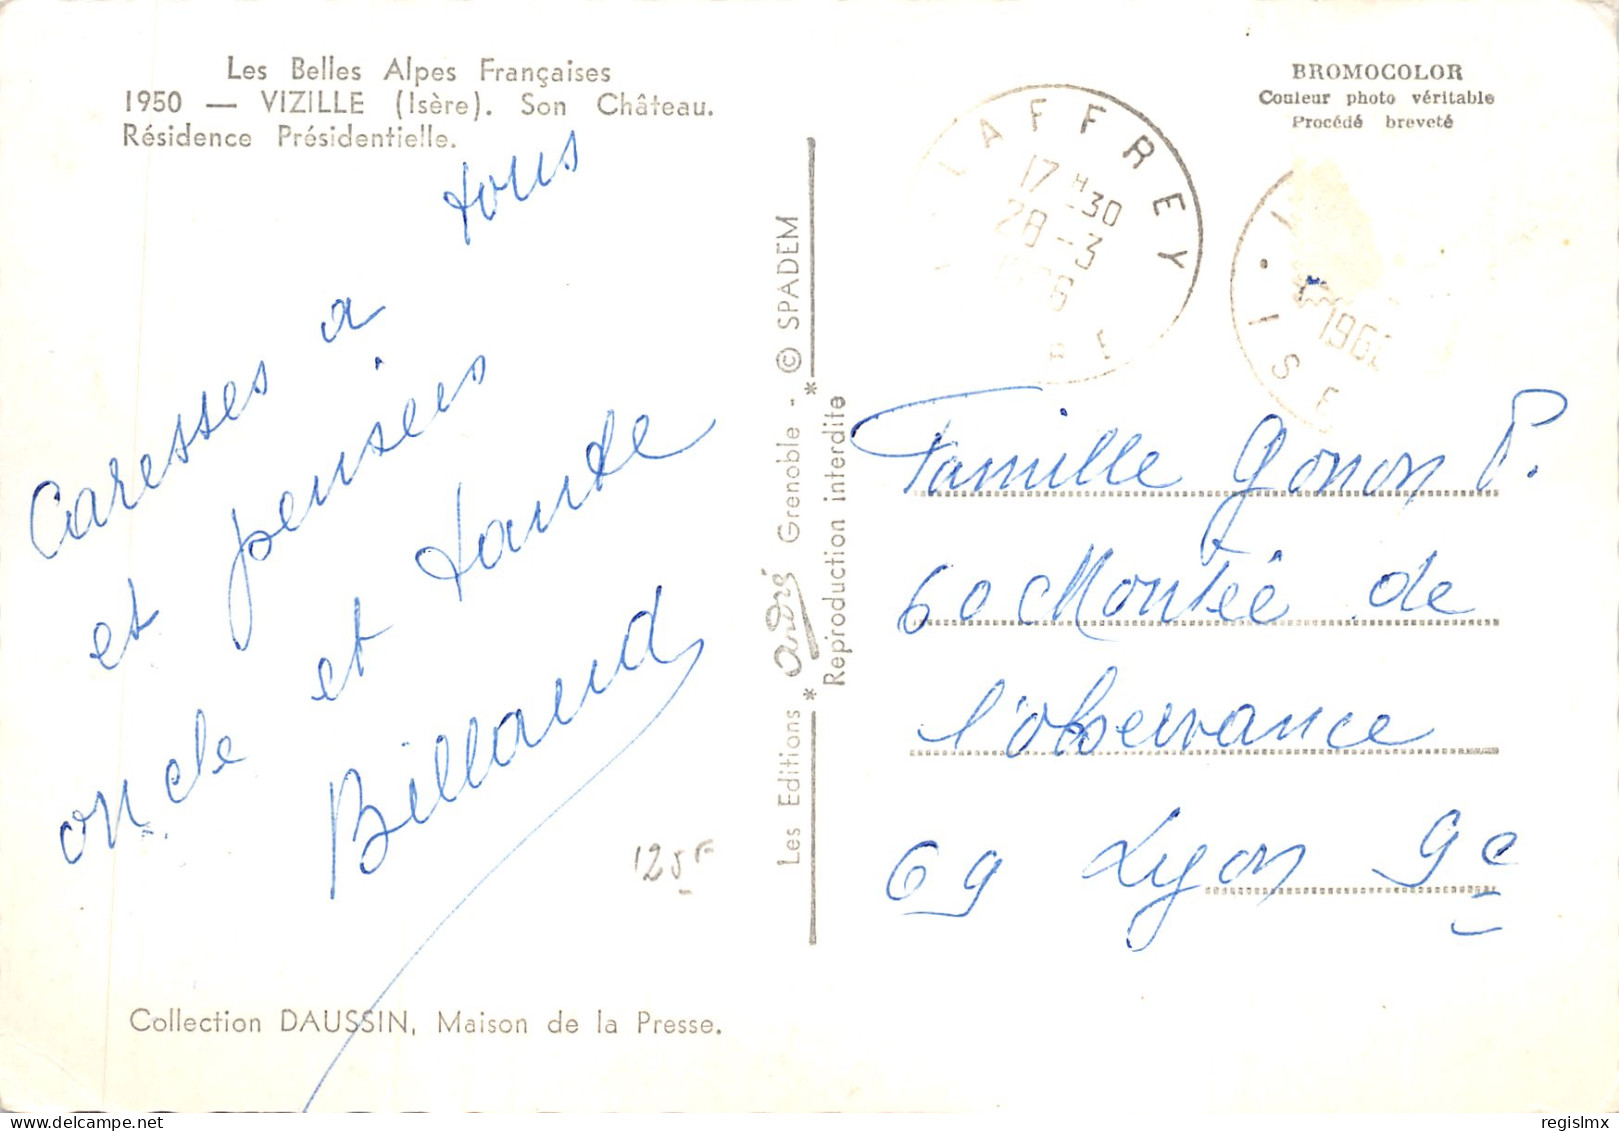 Les Belles Alpes Françaises
1950 — VIZILLE (Isère). Son Château.
Résidence Présidentielle.
Caresses a tous
et pensées
oncle et tante
Billaud
125F
Collection DAUSSIN, Maison de la Presse.
Les Editions * André Grenoble - * © SPADEM
Reproduction interdite
BROMOCOLOR
Couleur photo véritable
Procédé breveté
LAFFREY
17 H 30
28 - 3
ISE
196
Famille Gonon P.
60 Montée de
l'observance
69 Lyon 9e
regislmx